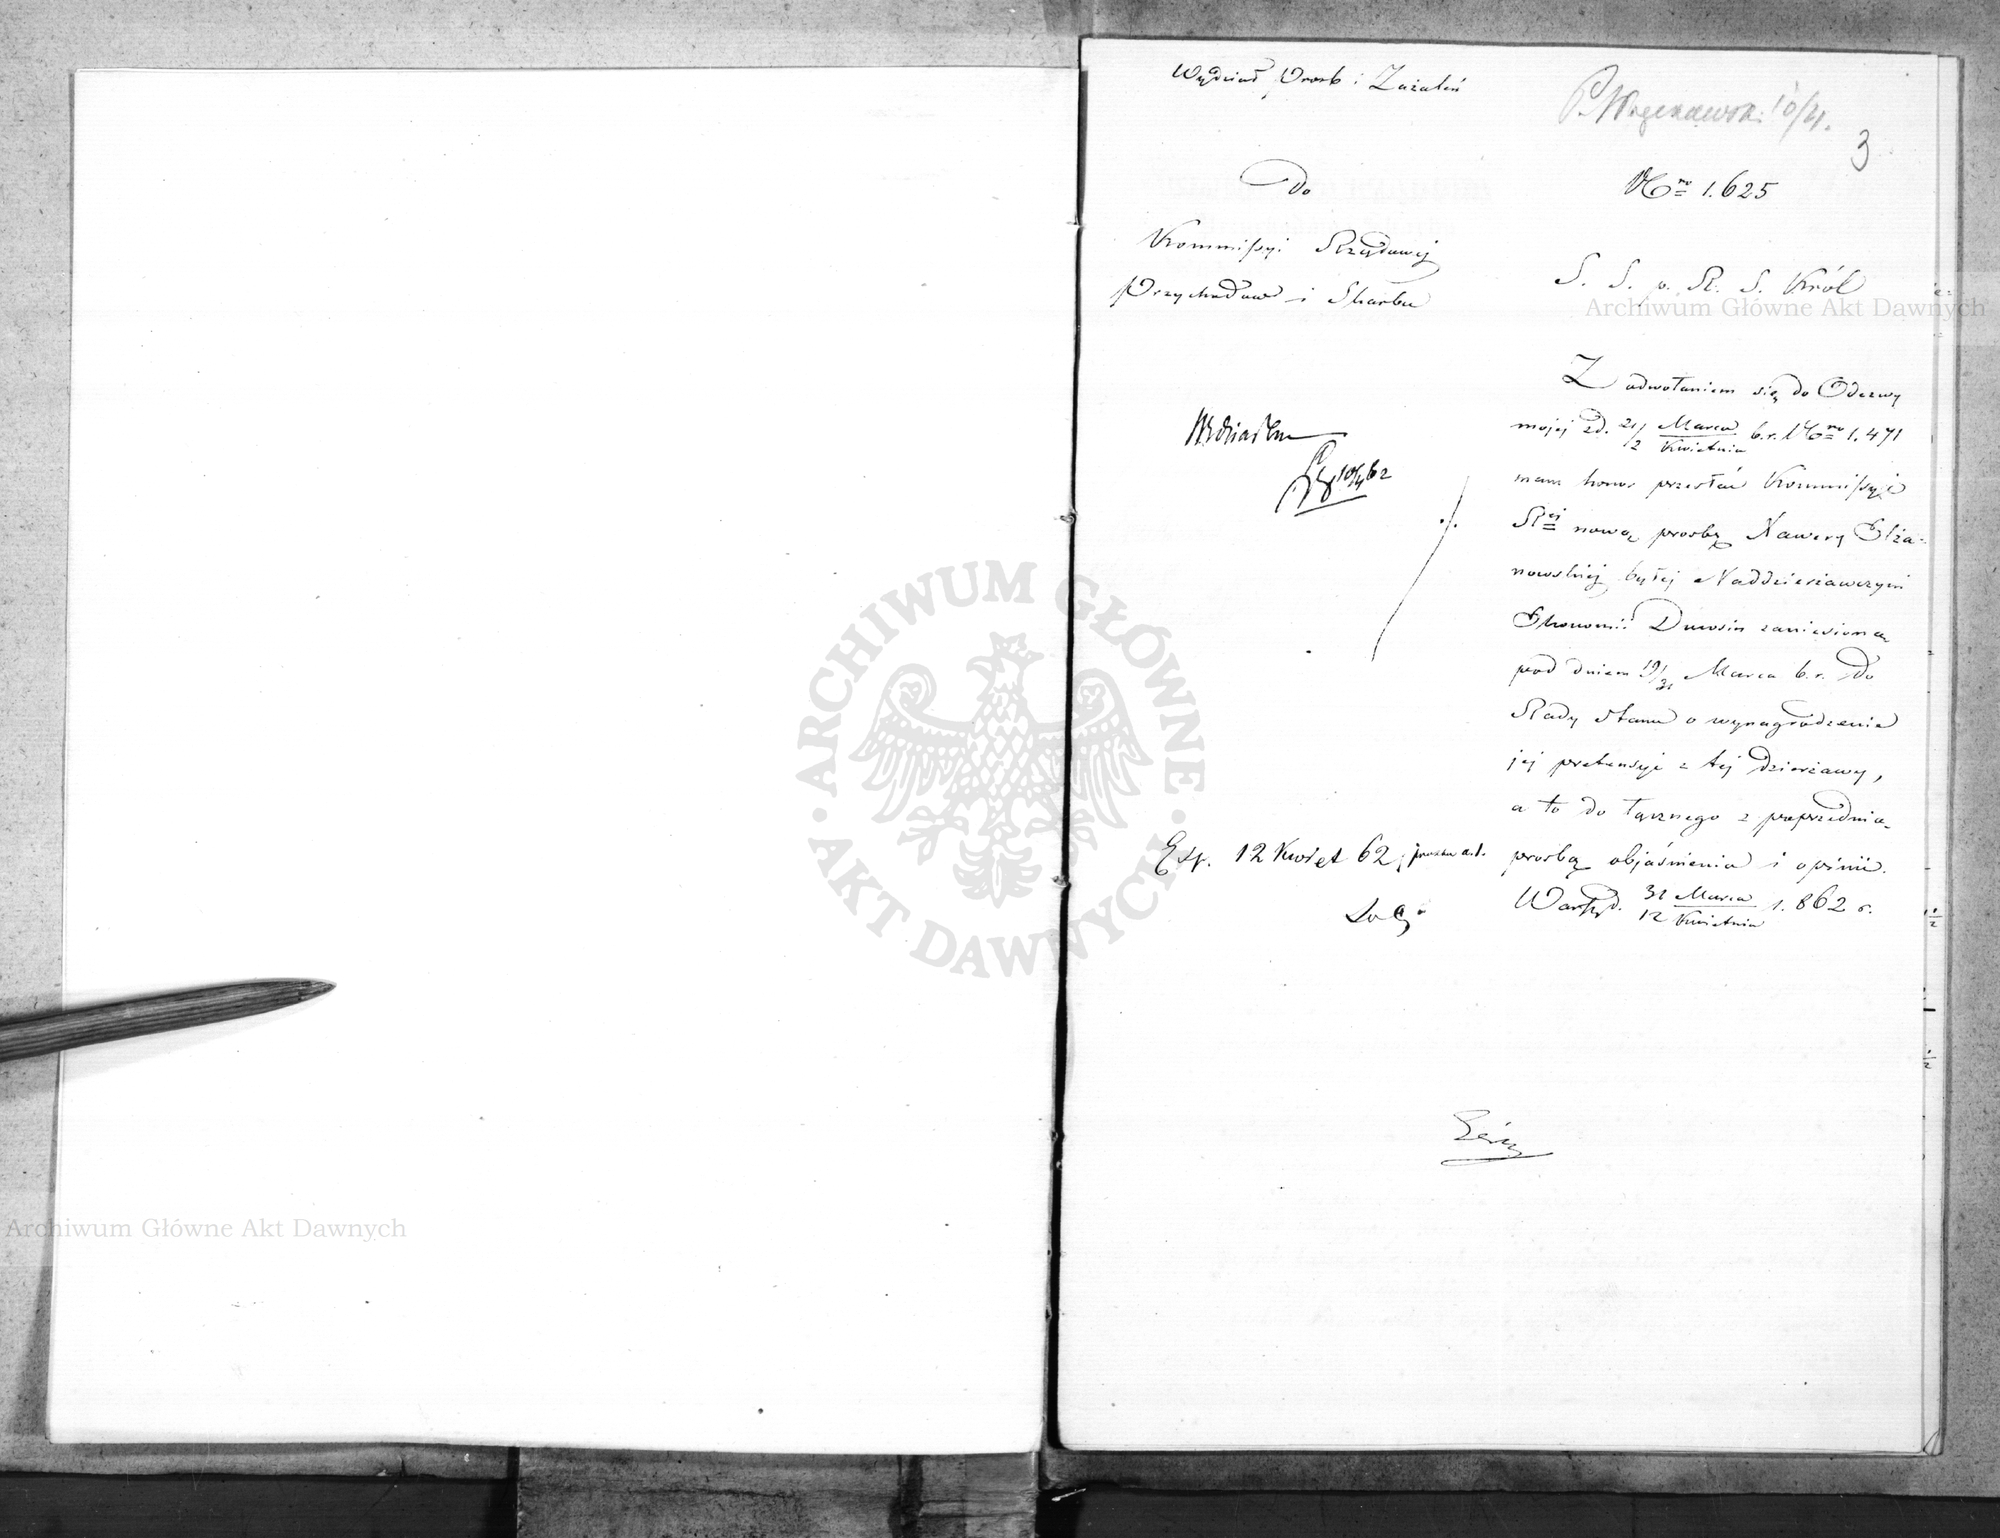 Wydział Prosb i Zażaleń
10/4.
3
Do
Nro 1.625
Kommissyi Rządowej
Przychodów i Skarbu
S. S. p. R. S. Król
Archiwum Główne Akt Dawnych
Z odwołaniem się do Odezwy
mojej z d. 21/2 Marca/Kwietnia b. r. Nro 1.471
10/4 62
mam honor przesłać Kommissyi
Rej nową prosbę Xawery Elża-
nowskiej byłej Naddzierżawczyni
Ekonomii Duwsin zaniesioną
pod dniem 19/31 Marca b. r. do
Rady Stanu o wynagrodzenie
jej pretensyi z tej dzierżawy,
a to do łącznego z poprzednią
prosbą objaśnienia i opinii.
Exp. 12 Kwiet 62
Warsz. d. 31 Marca/12 Kwietnia 1.862 r.
ARCHIWUM GŁÓWNE
AKT DAWNYCH
Archiwum Główne Akt Dawnych